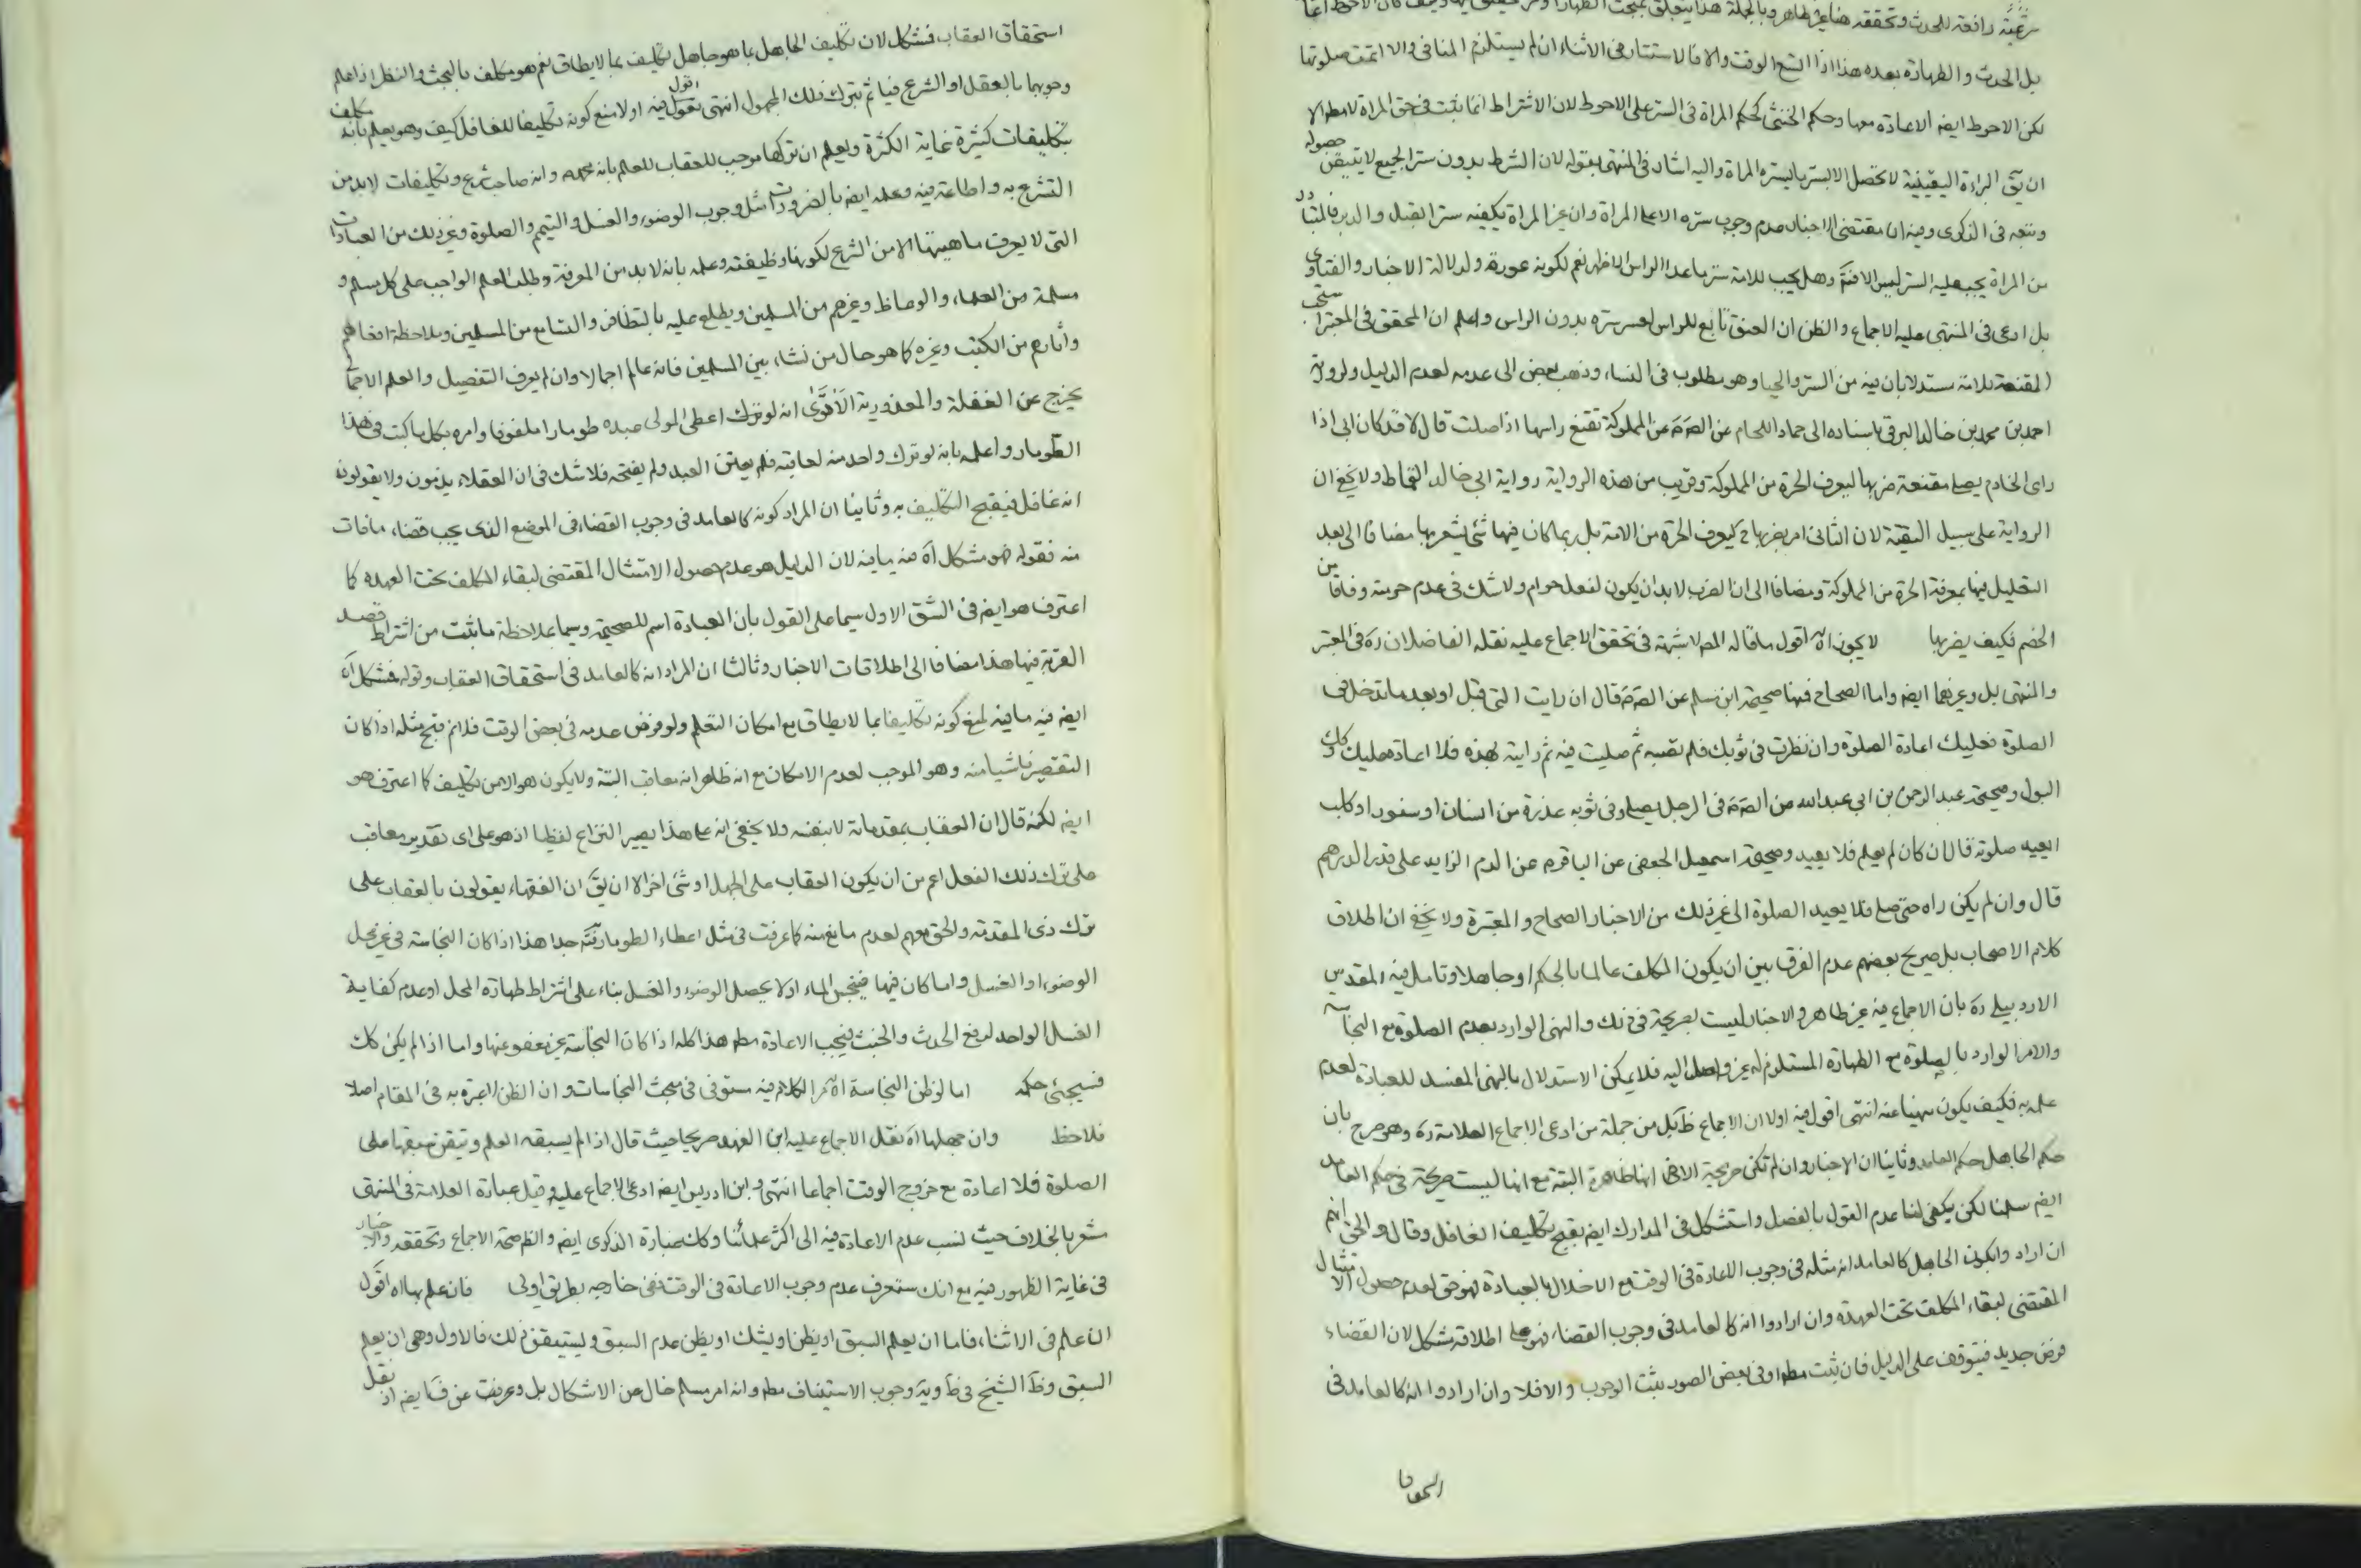 شرعية رافعة للحدث وتحققه هنا غير ظاهر وبالجملة هذا يتعلق بمبحث الطهارة
بل الحدث والطهارة بعده هذا اذا اتسع الوقت والا فالاستتار في الاثناء ان لم يستلزم المنافي والا اتمت صلوتها
لكن الاحوط ايضا الاعادة معها وحكم الخنثى كحكم المراة في الستر على الاحوط لان الاشتراط انما يثبت في حق المراة لا مطلقا الا
ان يق البراءة اليقينية لا تحصل الا بستر ما يستره المراة واليه اشار في المنتهى بقوله لان الشرط بدون ستر الجميع لا يتيقن حصوله
وتبعه في الذكرى وفيه ان مقتضى الاخبار عدم وجوب ستره الا على المراة وان غير المراة يكفيه ستر القبل والدبر فالمتبادر
من المراة يجب عليه الستر ليس الا فتم وهل يجب للامة ستر ما عدا الراس الاظهر نعم لكونه عورة ولدلالة الاخبار والفتاوى
بل ادعى في المنتهى عليه الاجماع والظن ان العنق تابع للراس لعسر ستره بدون الراس واعلم ان المحقق في المعتبر استحب
المقنعة للامة مستدلا بان فيه من الستر والحيا وهو مطلوب في النساء وذهب بعض الى عدمه لعدم الدليل ولرواية
احمد بن محمد بن خالد البرقي باسناده الى حماد اللحام عن الصم عن المملوكة تقنع راسها اذا صلت قال لا قد كان ابي اذا
راى الخادم يصلي مقنعة ضربها ليعرف الحرة من المملوكة وقريب من هذه الرواية رواية ابي خالد القماط ولا يخفى ان
الرواية على سبيل التقية لان الثاني امر بضربها ح ليعرف الحرة من الامة بل ربما كان فيها شئ يشعر بها مضافا الى بعد
التعليل فيها بمعرفة الحرة من المملوكة ومضافا الى ان الضرب لا بد ان يكون لفعل حرام ولا شك في عدم حرمته وفاقا من
الخصم فكيف يضربها لا يجوز اه اقول ما قاله المص لا شبهة في تحقق الاجماع عليه نقله الفاضلان ره في المعتبر
والمنتهى بل وغيرهما ايضا واما الصحاح فمنها صحيحة ابن مسلم عن الصم قال ان رايت المني قبل او بعد ما تدخل في
الصلوة فعليك اعادة الصلوة وان نظرت في ثوبك فلم تصبه ثم صليت فيه ثم رايته بعده فلا اعادة عليك وكك
البول وصحيحة عبد الرحمن بن ابي عبد الله عن الصم في الرجل يصلي وفي ثوبه عذرة من انسان او سنور او كلب
ايعيد صلوته قال ان كان لم يعلم فلا يعيد وصحيحة اسمعيل الجعفي عن الباقر م عن الدم الزايد على قدر الدرهم
قال وان لم يكن راه حتى صلى فلا يعيد الصلوة الى غير ذلك من الاخبار الصحاح والمعتبرة ولا يخفى ان اطلاق
كلام الاصحاب بل صريح بعضهم عدم الفرق بين ان يكون المكلف عالما بالحكم او جاهلا وتامل فيه المقدس
الاردبيلي ره بان الاجماع فيه غير ظاهر والاخبار ليست بصريحة في ذلك والنهي الوارد بعدم الصلوة مع النجاسة
والامر الوارد بالصلوة مع الطهارة المستلزم له غير واصل اليه فلا يمكن الاستدلال بالنهي المفسد للعبادة لعدم
علمه به فكيف يكون منهيا عنه انتهى اقول فيه اولا ان الاجماع ظ بل من جملة من ادعى الاجماع العلامة ره وهو صرح بان
حكم الجاهل حكم العامد وثانيا ان الاخبار وان لم تكن صريحة الا انها ظاهرة البتة مع انها ليست صريحة في حكم العامد
ايضا سلمنا لكن يكفي لنا عدم القول بالفصل واستشكل في المدارك ايضا بقبح تكليف الغافل وقال والحق انهم
ان ارادوا بكون الجاهل كالعامد انه مثله في وجوب الاعادة في الوقت مع الاخلال بالعبادة فهو حق لعدم حصول الامتثال
المقتضى لبقاء المكلف تحت العهدة وان ارادوا انه كالعامد في وجوب القضاء فهو على اطلاقه مشكل لان القضاء
فرض جديد فيتوقف على الدليل فان ثبت مطلقا او في بعض الصور ثبت الوجوب والا فلا وان ارادوا انه كالعامد في
استحقاق العقاب فمشكل لان تكليف الجاهل بما هو جاهل تكليف بما لا يطاق نعم هو مكلف بالبحث والنظر اذا علم
وجوبهما بالعقل او الشرع فياثم بترك ذلك المجهول انتهى اقول فيه اولا منع كونه تكليفا للغافل كيف وهو يعلم بانه مكلف
بتكليفات كثيرة غاية الكثرة ويعلم ان تركها موجب للعقاب للعلم بانه وانه صاحب شرع وتكليفات لا بد من
التشرع به واطاعته فيه وعلمه ايضا بالضروريات مثل وجوب الوضوء والغسل والتيمم والصلوة وغير ذلك من العبادات
التي لا يعرف ماهيتها الا من الشرع لكونها وظيفته وعلمه بانه لا بد من المعرفة وطلب العلم الواجب على كل مسلم و
مسلمة من العلماء والوعاظ وغيرهم من المسلمين ويطلع عليه بالتظافر والتسامع من المسلمين وملاحظة افعالهم
واثارهم من الكتب وغيره كما هو حال من نشاء بين المسلمين فانه عالم اجمالا وان لم يعرف التفصيل والعلم الاجمالي
يخرج عن الغفلة والمعذورية الا ترى انه لو اعطى المولى عبده طومارا ملفوفا وامره بكل ما كتب في هذا
الطومار واعلمه بانه لو ترك واحد منه لعاقبه فلم يعتن العبد ولم يفتحه فلا شك في ان العقلاء يذمون ولا يقولون
انه غافل فيقبح التكليف به وثانيا ان المراد كونه كالعامد في وجوب القضاء في الموضع الذي يجب قضاء ما فات
منه فقوله فهو مشكل اه فيه ما فيه لان الدليل هو عدم حصول الامتثال المقتضى لبقاء المكلف تحت العهدة كما
اعترف هو ايضا في الشق الاول سيما على القول بان العبادة اسم للصحيحة وسيما بملاحظة ما ثبت من اشتراط قصد
القربة فيها هذا مضافا الى اطلاقات الاخبار وثالثا ان المراد انه كالعامد في استحقاق العقاب وقوله فمشكل اه
ايضا فيه ما فيه لمنع كونه تكليفا بما لا يطاق مع امكان التعلم ولو فرض عدمه في بعض الوقت فلا نم قبح مثله اذا كان
التقصير ناشيا منه وهو الموجب لعدم الامكان مع انه ظاهرا انه معاقب البتة ولا يكون هو الا من تكليف كما اعترف هو
ايضا لكنه قال ان العقاب بمقدماته لا بنفسه ولا يخفى انه على هذا يصير النزاع لفظيا اذ هو على اى تقدير معاقب
على ترك ذلك الفعل اعم من ان يكون العقاب على الجهل او شئ اخر الا ان يق ان الفقهاء يقولون بالعقاب على
ترك ذي المقدمة والحق معهم لعدم مانع منه كما عرفت في مثل اعطاء الطومار فتم جدا هذا اذا كان النجاسة في غير محل
الوضوء او الغسل واما كان فيها فينجس الماء اولا يحصل الوضوء والغسل بناء على اشتراط طهارة المحل او عدم كفاية
الغسل الواحد لرفع الحدث والخبث فيجب الاعادة مطلقا هذا كله اذا كان النجاسة غير معفو عنها واما اذا لم يكن كك
فسيجئ حكمه اما لو ظن النجاسة اه الكلام فيه مستوفى في مبحث النجاسات وان الظن لا عبرة به في المقام اصلا
فلاحظ وان جهلها اه نقل الاجماع عليه ابن الفهد صريحا حيث قال اذا لم يسبقه العلم وتيقن سبقها على
الصلوة فلا اعادة مع خروج الوقت اجماعا انتهى وابن ادريس ايضا ادعى الاجماع عليه وقيل عبارة العلامة في المنتهى
مشعر بالخلاف حيث نسب عدم الاعادة فيه الى اكثر علمائنا وكك عبارة الذكرى ايضا والظم صحة الاجماع وتحققه والاخبار
في غاية الظهور فيه مع انك ستعرف عدم وجوب الاعادة في الوقت ففي خارجه بطريق اولى فان علم بها اه اقول
ان علم في الاثناء فاما ان يعلم السبق او يظن او يشك او يظن عدم السبق ويستيقن ذلك فالاول وهي ان يعلم
السبق وظ الشيخ في ظ وية وجوب الاستيناف مطلقا وانه امر مسلم خال عن الاشكال بل وعرفت عن ف ايضا اذ نقل